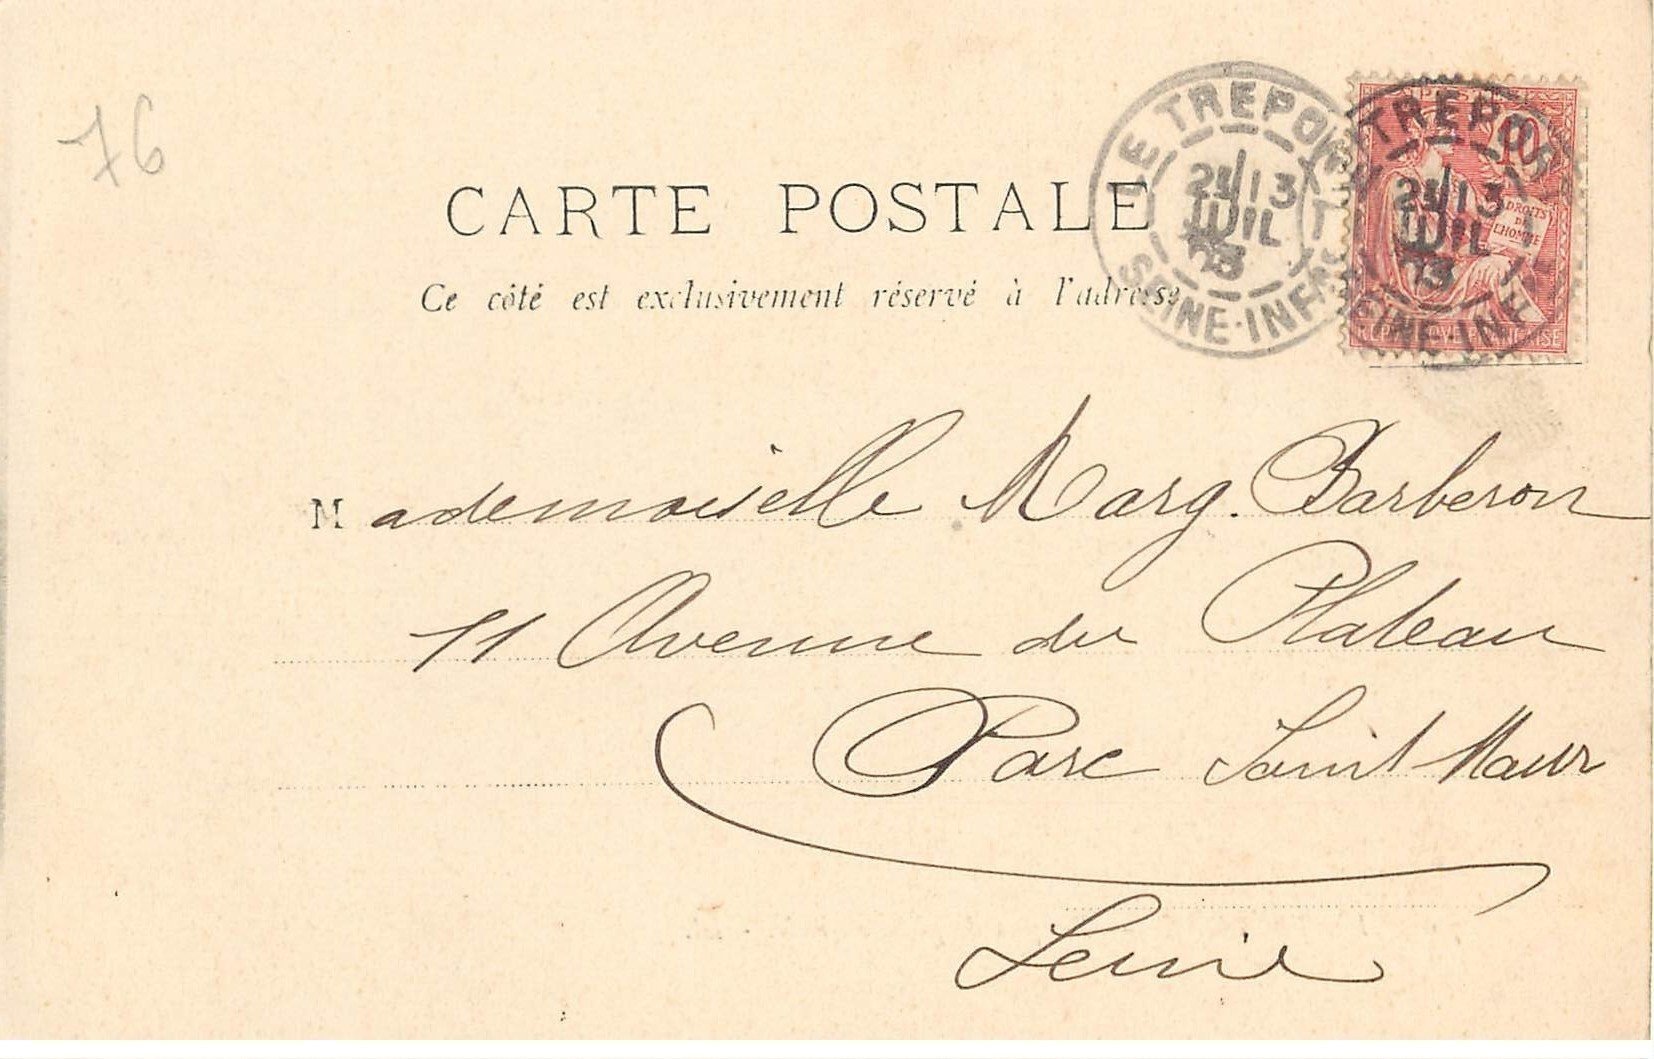 76
CARTE POSTALE
Ce côté est exclusivement réservé à l'adresse
LE TREPORT
21 13
JUIL
03
SEINE-INFRE
LE TREPORT
21 13
JUIL
03
SEINE-INF
10
DROITS
DE
L'HOMME
Mademoiselle Marg. Barberon
11 Avenue du Plateau
Parc Saint Maur
Seine